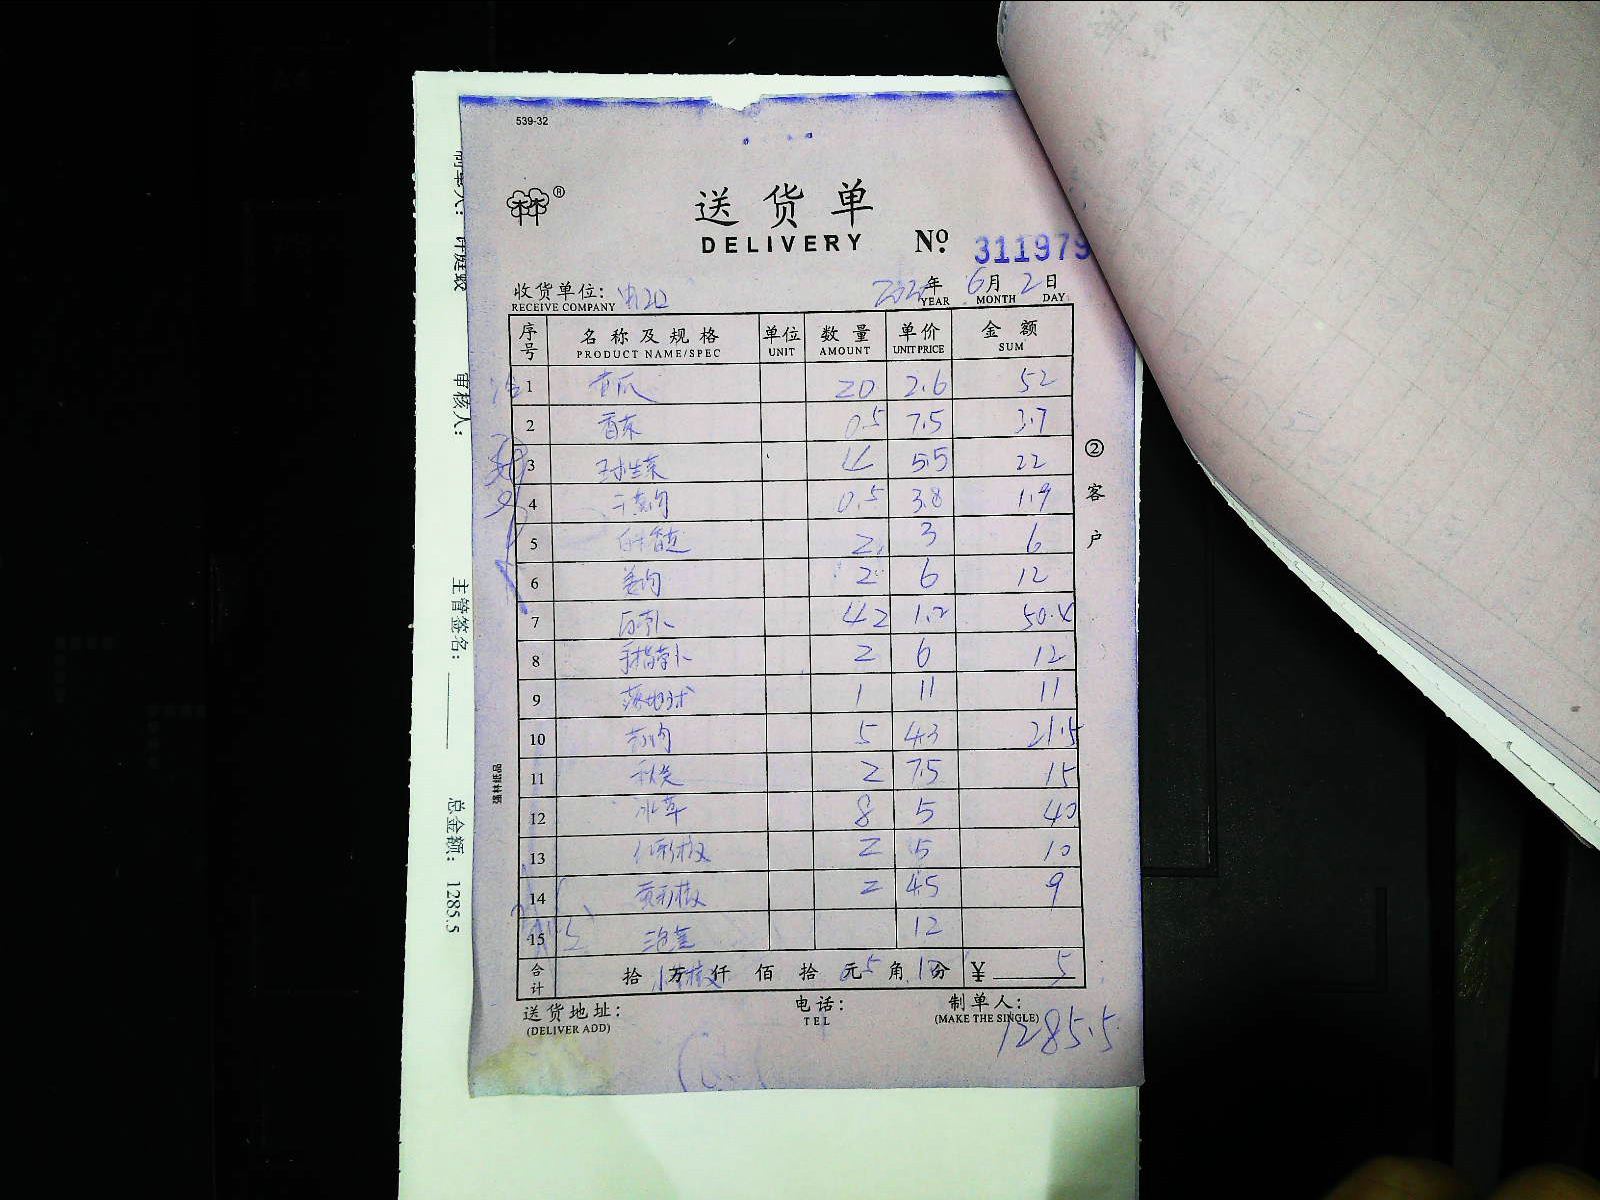 539-32
®
送货单
DELIVERY
№ 311979
收货单位:
RECEIVE COMPANY
年 6月 2日
YEAR MONTH DAY
序号 名称及规格 单位 数量 单价 金额
PRODUCT NAME/SPEC UNIT AMOUNT UNIT PRICE SUM
1 黄瓜 20 2.6 52
2 香菜 0.5 7.5 3.7
3 球生菜 4 5.5 22
4 干葱肉 0.5 3.8 1.9
5 2 3 6
6 姜肉 2 6 12
7 白萝卜 42 1.2 50.4
8 手指萝卜 2 6 12
9 1 11 11
10 5 4.3 21.5
11 秋葵 2 7.5 15
12 冰草 8 5 40
13 红彩椒 2 5 10
14 黄彩椒 2 4.5 9
15 12
合计 拾 万 仟 佰 拾 元 角 分 ¥ 5
送货地址: 电话: 制单人:
(DELIVER ADD) TEL (MAKE THE SINGLE)
1285.5
②客户
强林纸品
制单人: 许庭毅
审核人:
主管签名:
总金额: 1285.5